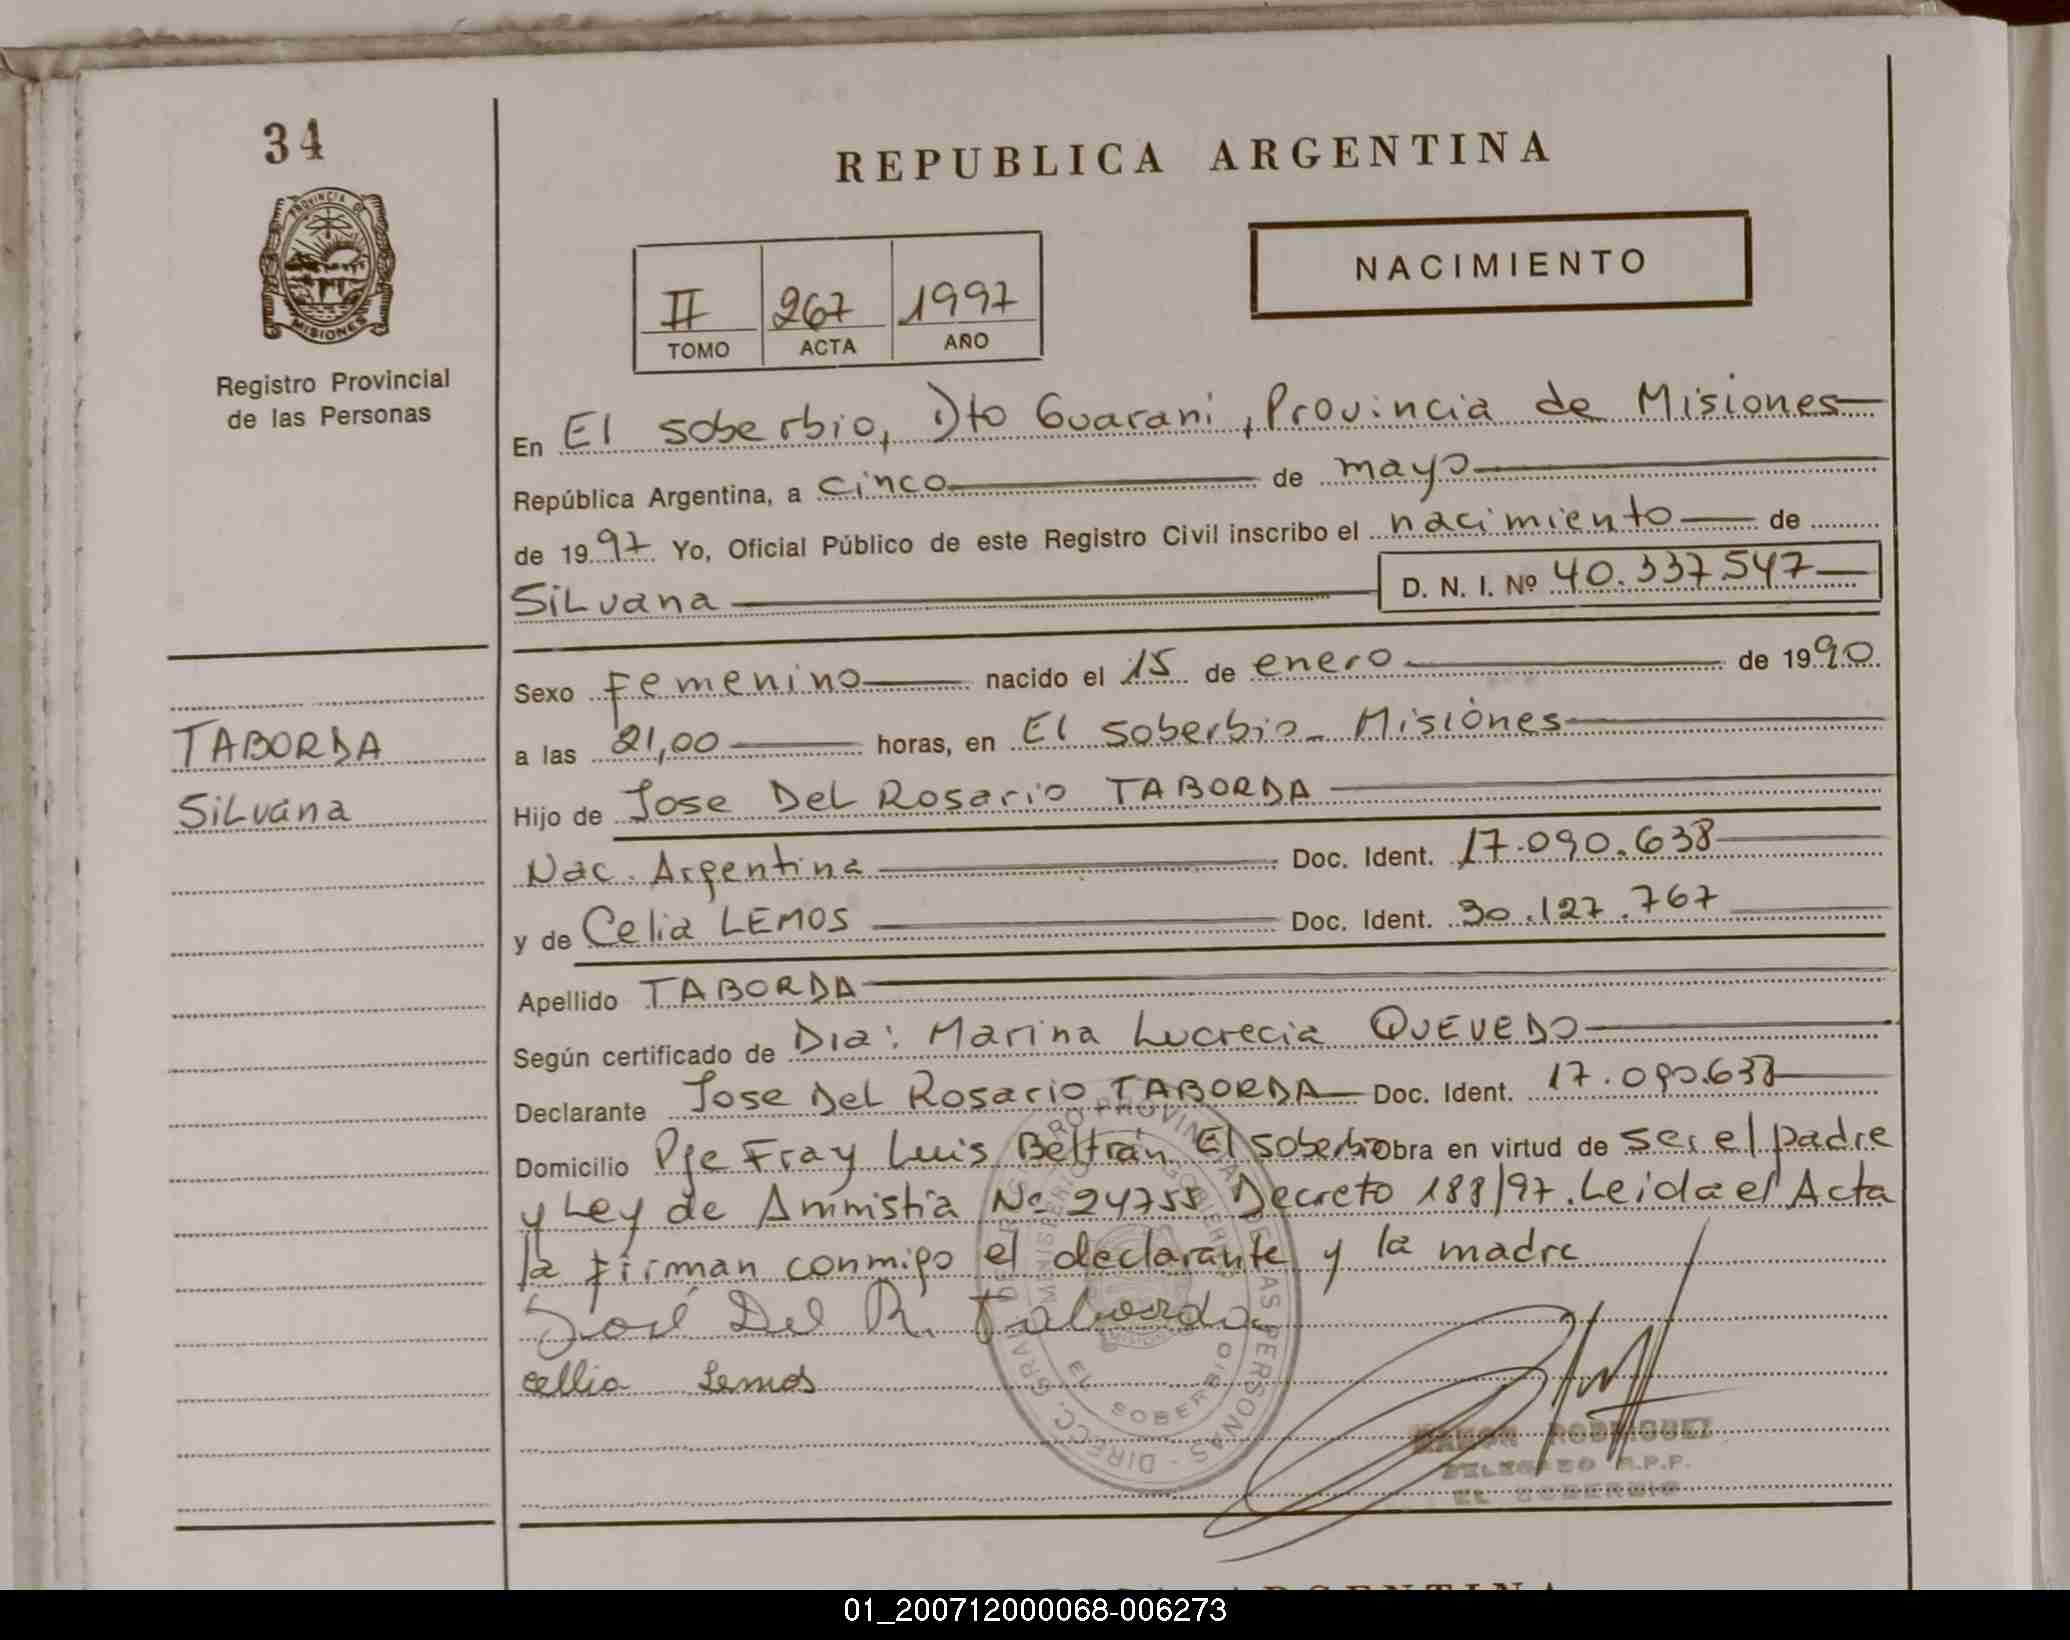 34
REPUBLICA ARGENTINA
PROVINCIA DE
MISIONES
Registro Provincial
de las Personas
II 267 1997
TOMO ACTA AÑO
NACIMIENTO
En El soberbio, Dto Guarani, Provincia de Misiones
República Argentina, a cinco de mayo
de 1997 Yo, Oficial Público de este Registro Civil inscribo el nacimiento de
Silvana D. N. I. Nº 40.337.547
Sexo Femenino nacido el 15 de enero de 1990
a las 21,00 horas, en El soberbio - Misiones
Hijo de Jose Del Rosario TABORDA
Nac. Argentina Doc. Ident. 17.090.638
y de Celia LEMOS Doc. Ident. 30.127.767
Apellido TABORDA
Según certificado de Dra: Marina Lucrecia QUEVEDO
Declarante Jose Del Rosario TABORDA Doc. Ident. 17.090.638
Domicilio Pje Fray Luis Beltrán El soberbio obra en virtud de ser el padre
y Ley de Amnistia Nº 24755 Decreto 188/97. Leida el Acta
la firman conmigo el declarante y la madre
José Del R. Taborda
cellia Lemos
TABORDA
Silvana
EL SOBERBIO
RAMON RODRIGUEZ
DELEGADO R.P.P.
EL SOBERBIO
01_200712000068-006273